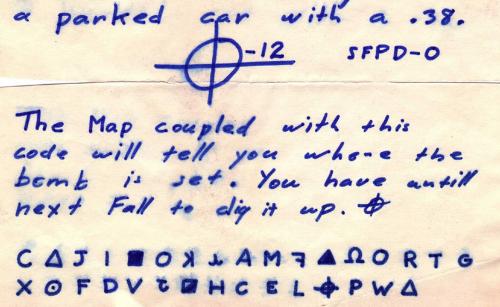 a parked car with a .38.
⌖-12 SFPD-0
The Map coupled with this
code will tell you whone the
bomb is set. You have untill
next Fall to dig it up. ⌖
C Δ J I ■ O ʞ ⅄ A M ꟻ ▲ Ω O R T G
X ⊙ F D V ⯒ ■ H C E L ⌖ P W Δ